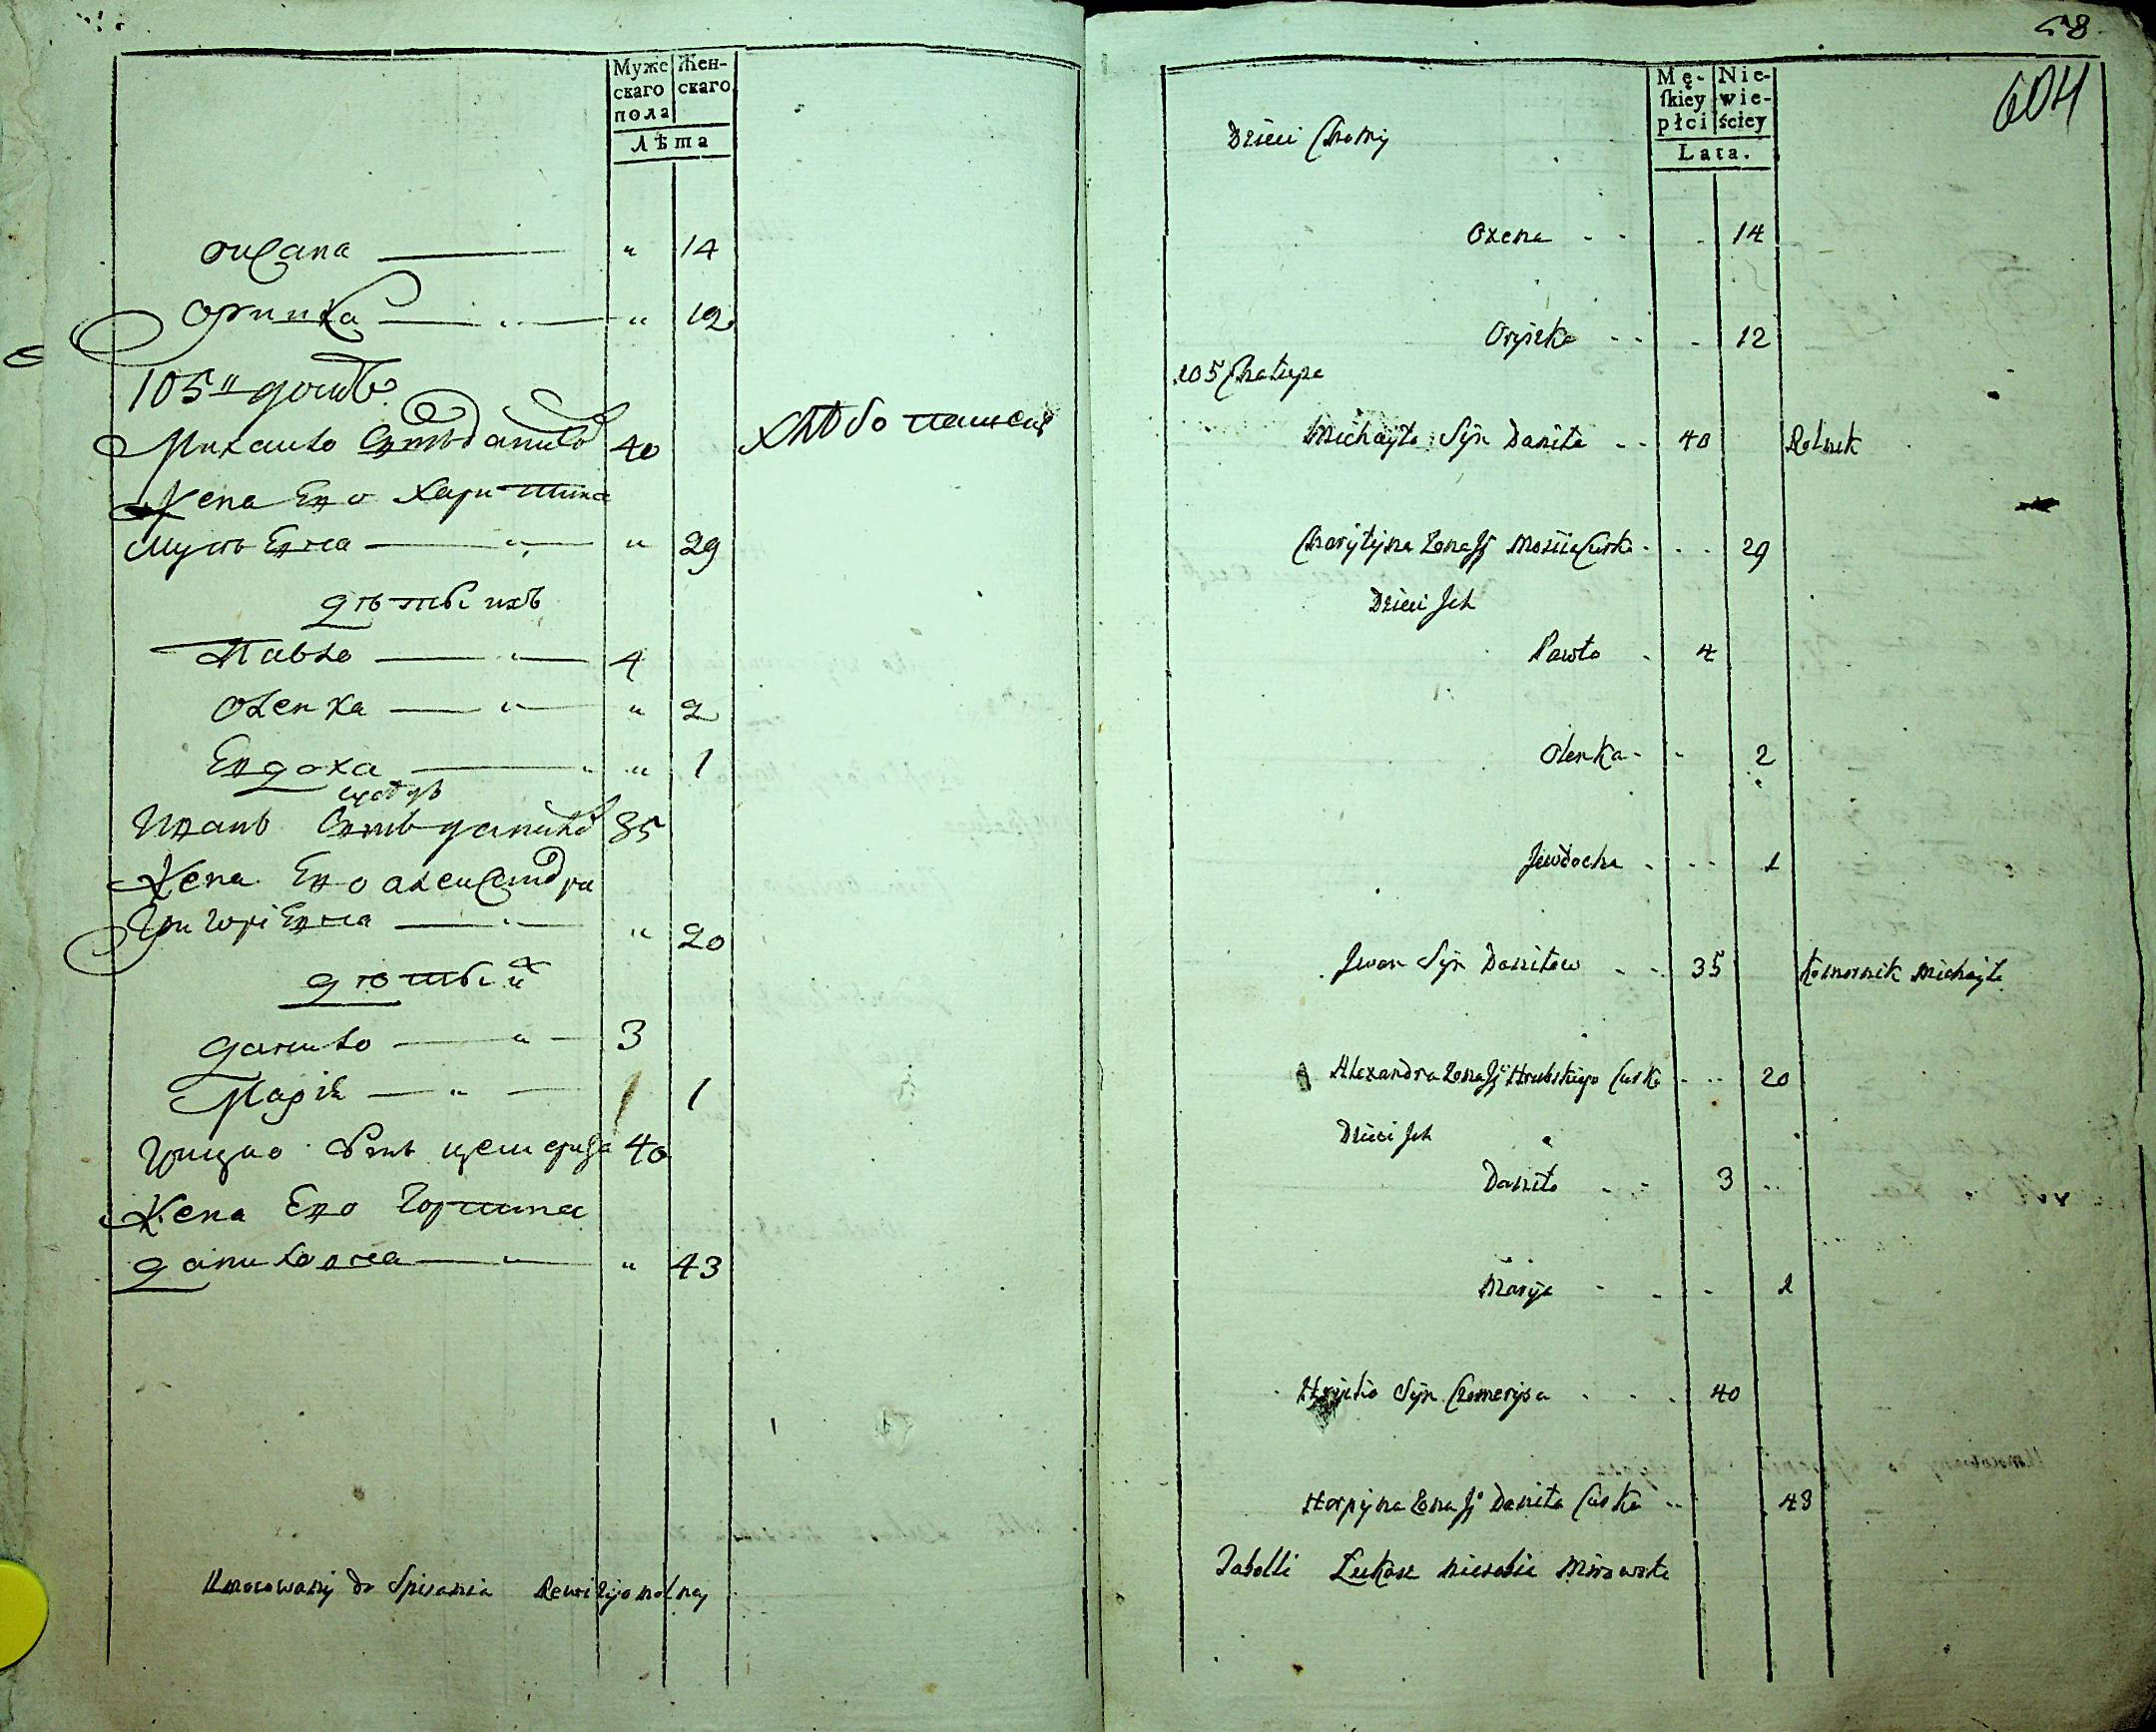 Муже
скаго
пола
Жен-
скаго
Лѣта
оксана " 14
оришка " 12
105 "домъ
Михаило Сынъ данило 40 хлѣбопашецъ
Жена Ево Харитина
" 29
дѣти ихъ
Павло 4
оленка " 2
Евдоха " 1
Иванъ Сынъ данило 35
Жена Ево александра
Григоріевна " 20
дѣти их
данило 3
Марія 1
Грицко Сынъ чемериса 40
Жена Ево Горпина
даниловна " 43
Umocowany do Spisania Rewizyonalney
58
604
Mę-
ſkiey
płci
Nie-
wie-
ściey
Lata.
Dzieci Chomy
Oxena 14
Oryszka 12
105 Chałupa
Michayło Syn Daniła 40 Rolnik
Charytyna Żona Jj Curka 29
Dzieci Jch
Pawło 4
Olenka 2
Jewdocha 1
Jwan Syn Daniłow 35 Komornik Michayła
Alexandra Żona Jj Hrubskiego Curka 20
Dzieci Jch
Daniło 3
Marya 1
Hryćko Syn Czemerysa 40
Horpyna Żona Jj Daniła Curka 43
Tabelli Łukasz